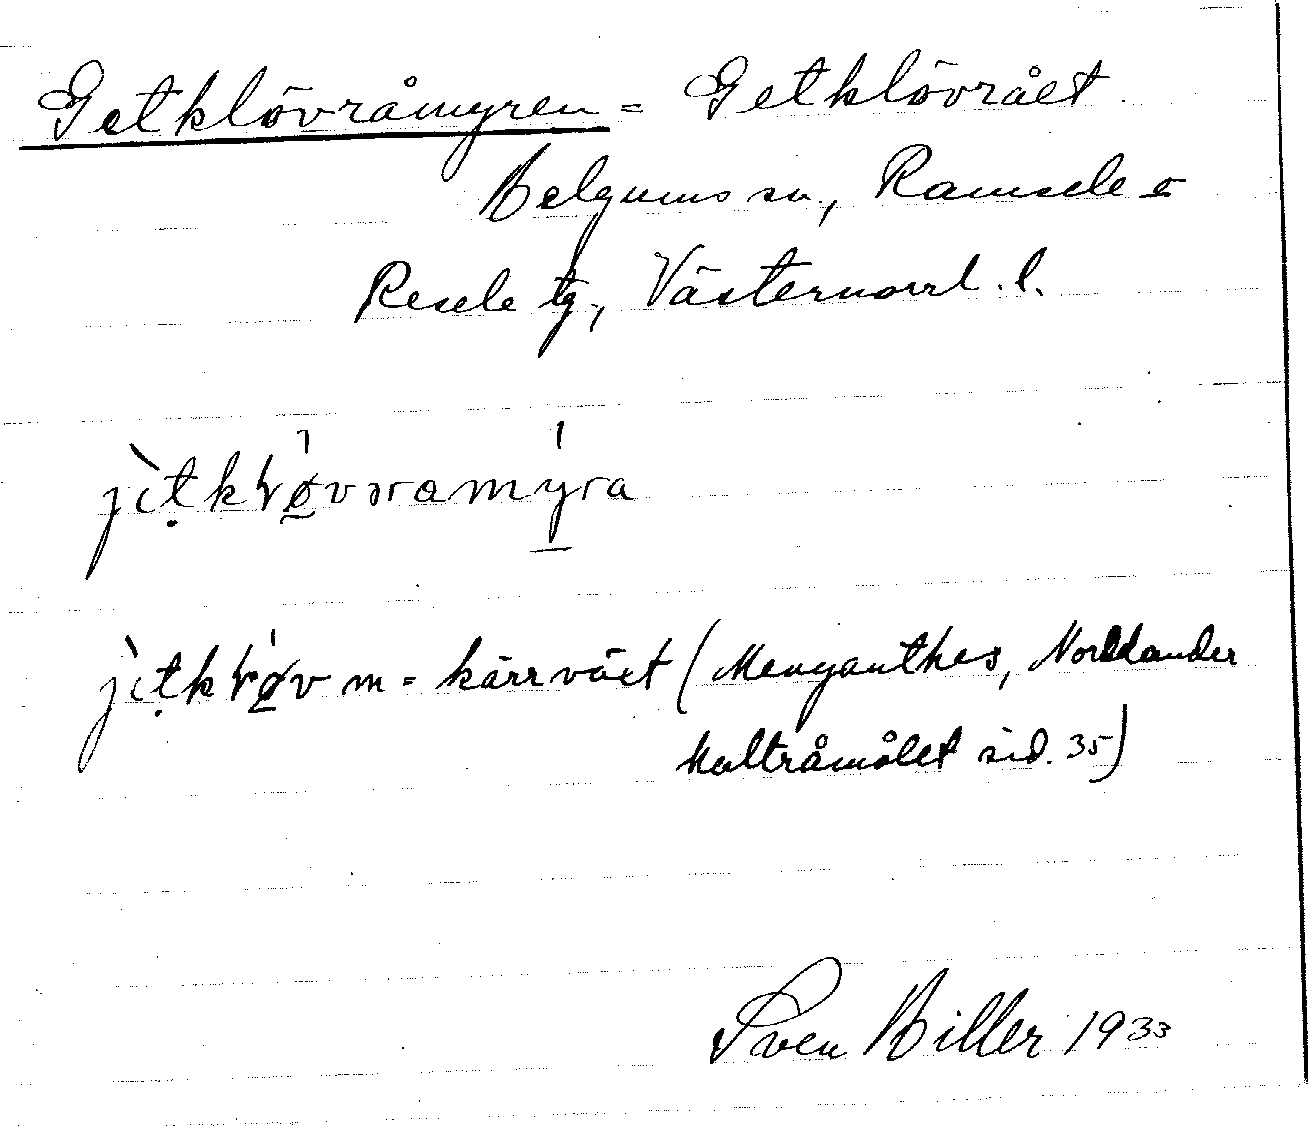 Getklövråmyren = Getklövrået
Helgums sn, Ramsele o
Resele tg, Västernorrl. l.
jìtkɽøvsramyra
jìtkɽøv m = kärrväxt (Menyanthes, Nordlander
Multråmålet sid. 35)
Sven Hiller 1933